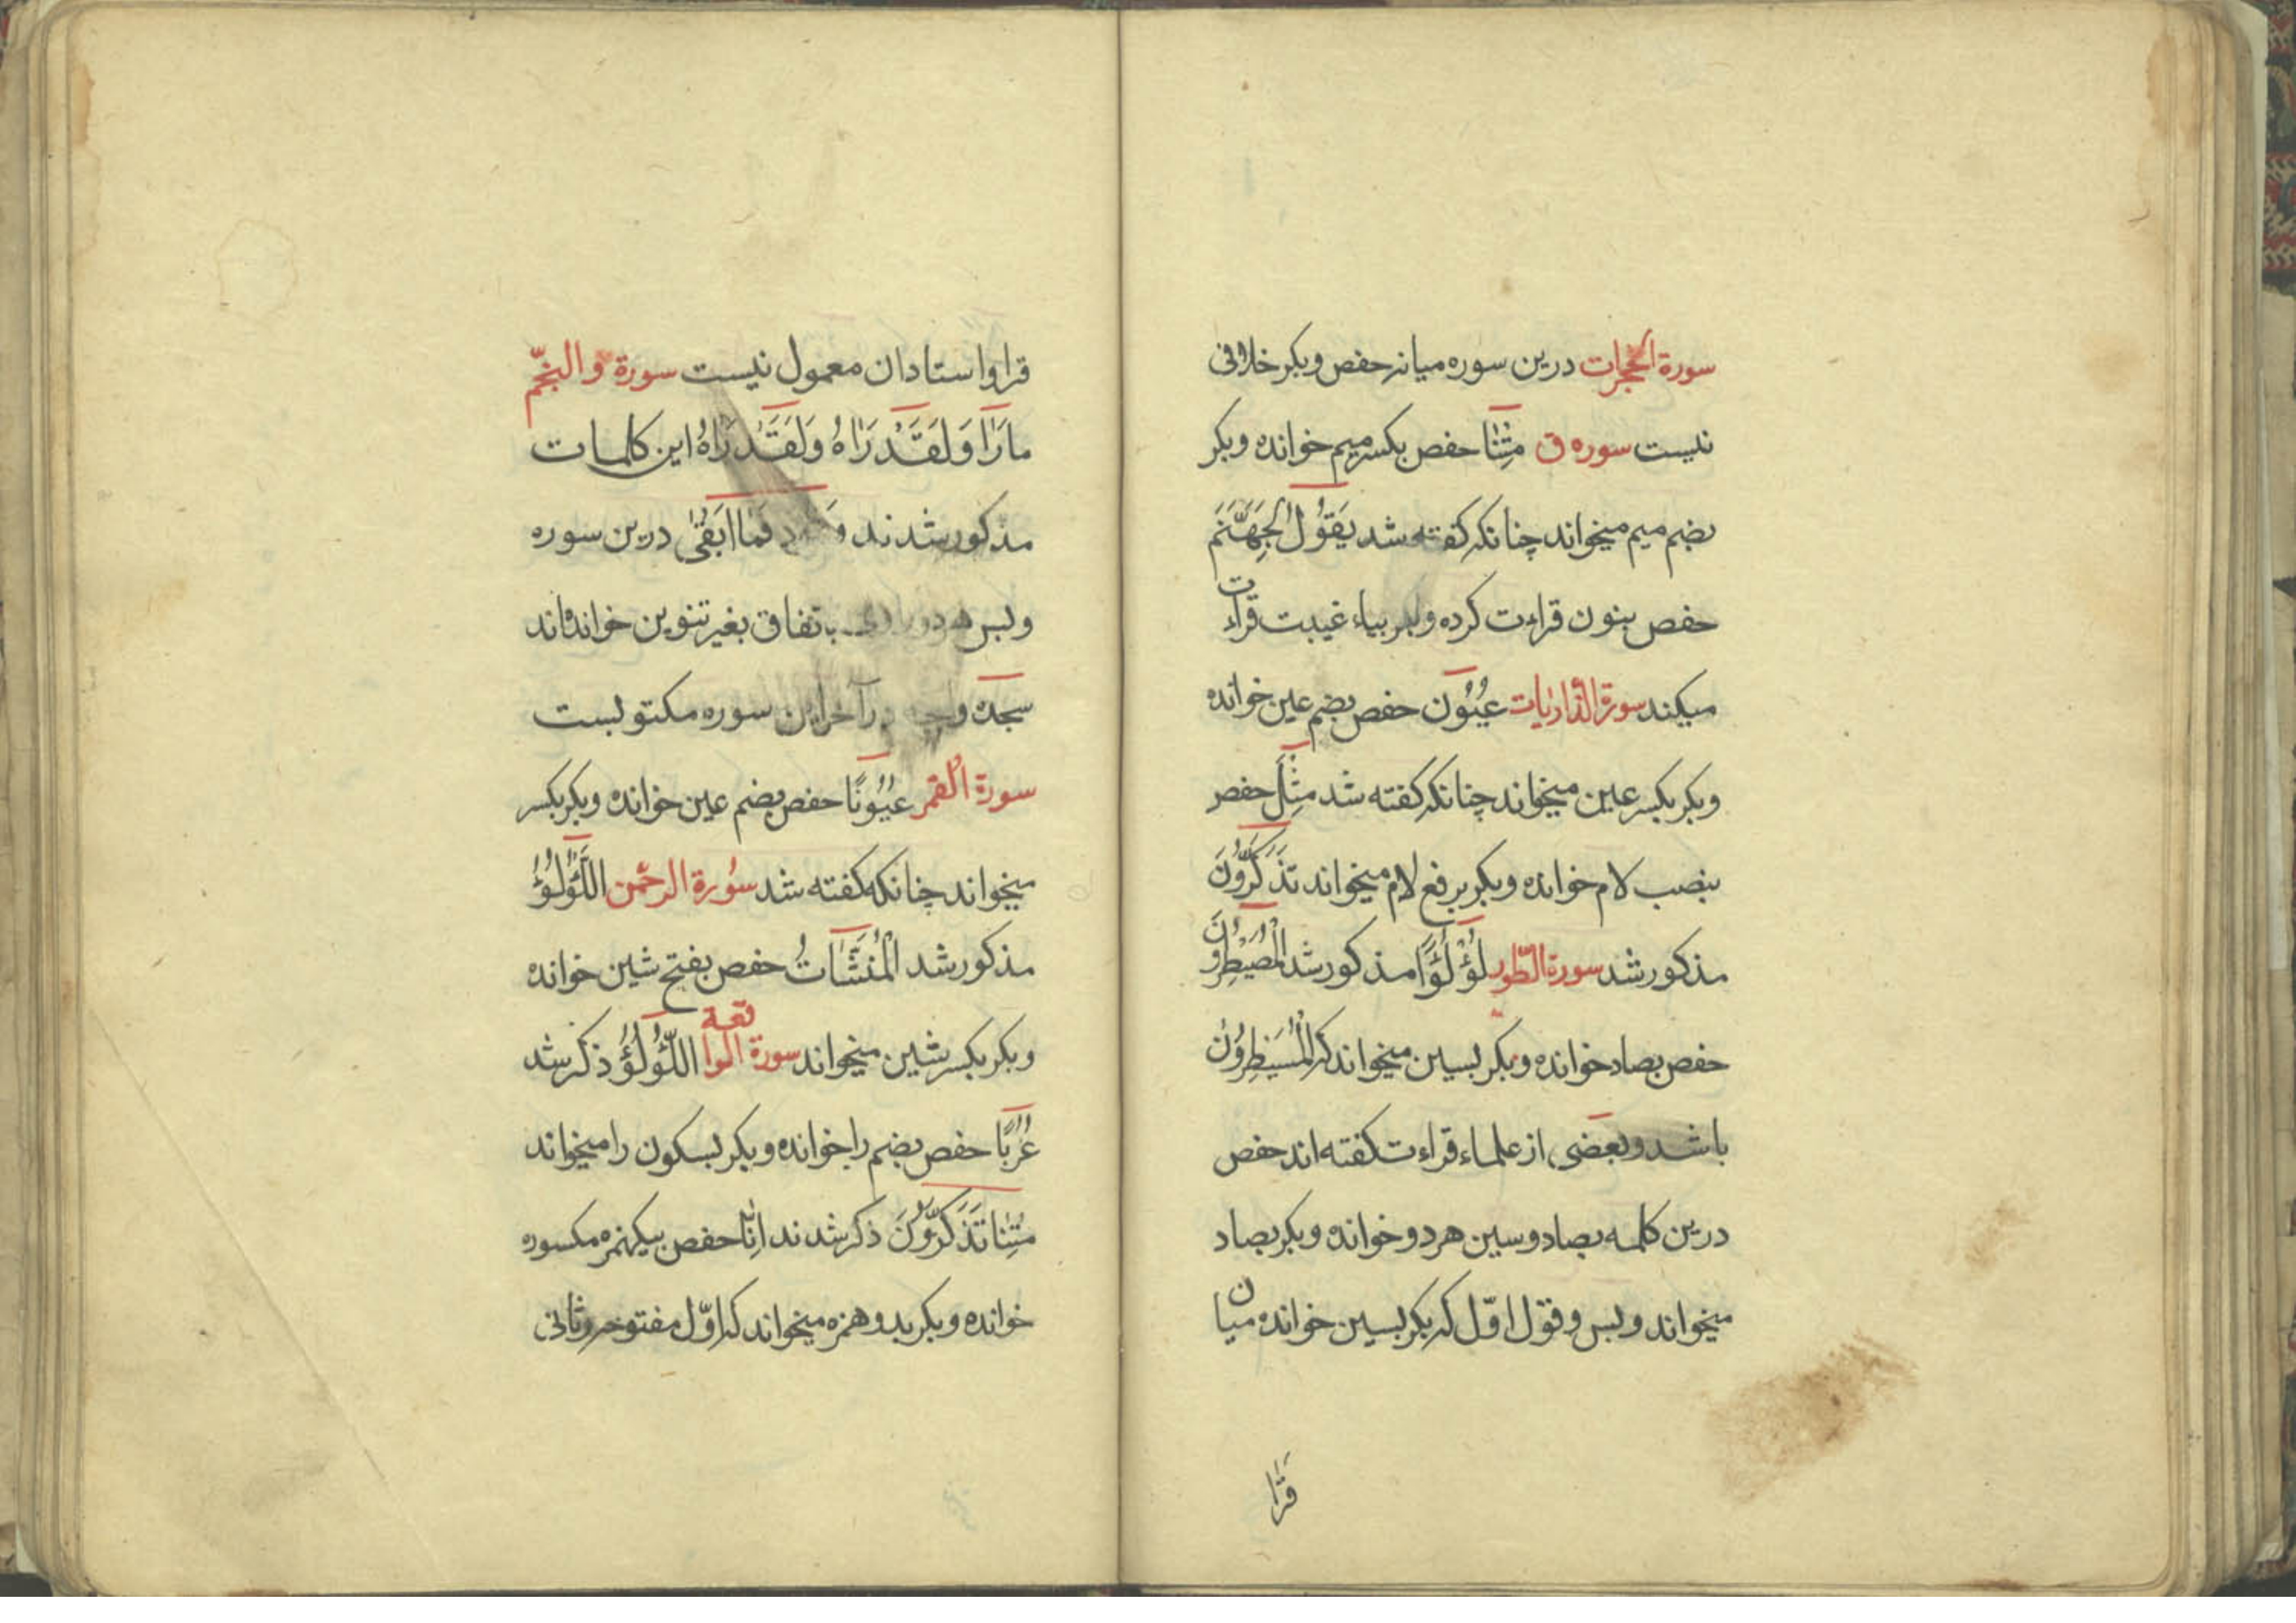 سورة الحجرات درین سوره میانه حفص وبکر خلافی
نیست سوره ق مِتْنَا حفص بکسر میم خوانده وبکر
بضم میم میخواند چنانکه کفته شد یَقُوْلُ لِجَهَنَّمَ
حفص بنون قراءت کرده وبکر بیاء غیبت قراءت
میکند سورة الذاریات عُیُوْن حفص بضم عین خوانده
وبکر بکسر عین میخواند چنانکه کفته شد مِثْلَ حفص
بنصب لام خوانده وبکر برفع لام میخواند تَذَکَّرُوْنَ
مذکور شد سورة الطّور لُؤْلُؤًا مذکور شد الْمُصَیْطِرُوْنَ
حفص بصاد خوانده وبکر بسین میخواند که الْمُسَیْطِرُوْنَ
باشد وبعضی از علماء قراءت کفته اند حفص
درین کلمه بصاد وسین هر دو خوانده وبکر بصاد
میخواند وبس وقول اوّل که بکر بسین خوانده میان
قرّا
قرا واستادان معمول نیست سورة والنّجم
مارَاٰ وَلَقَدْ رَاٰهُ وَلَقَدْ رَاٰهُ این کلمات
مذکور شدند فَمَا اَبْقٰی درین سوره
وبس هر دو باتفاق بغیر تنوین خوانده‌اند
سجدهٔ آخر این سوره مکتوبست
سورة القمر عُیُوْنًا حفص بضم عین خوانده وبکر بکسر
میخواند چنانکه کفته شد سُورة الرحمن اللُّؤْلُؤُ
مذکور شد الْمُنْشَاٰتُ حفص بفتح شین خوانده
وبکر بکسر شین میخواند سورة الواقعة اللُّؤْلُؤُ ذکر شد
عُرُبًا حفص بضم را خوانده وبکر بسکون را میخواند
مِتْنَا تَذَکَّرُوْنَ ذکر شدند اِنَّا حفص بیکهمزه مکسوره
خوانده وبکر بدو همزه میخواند که اوّل مفتوحه وثانی